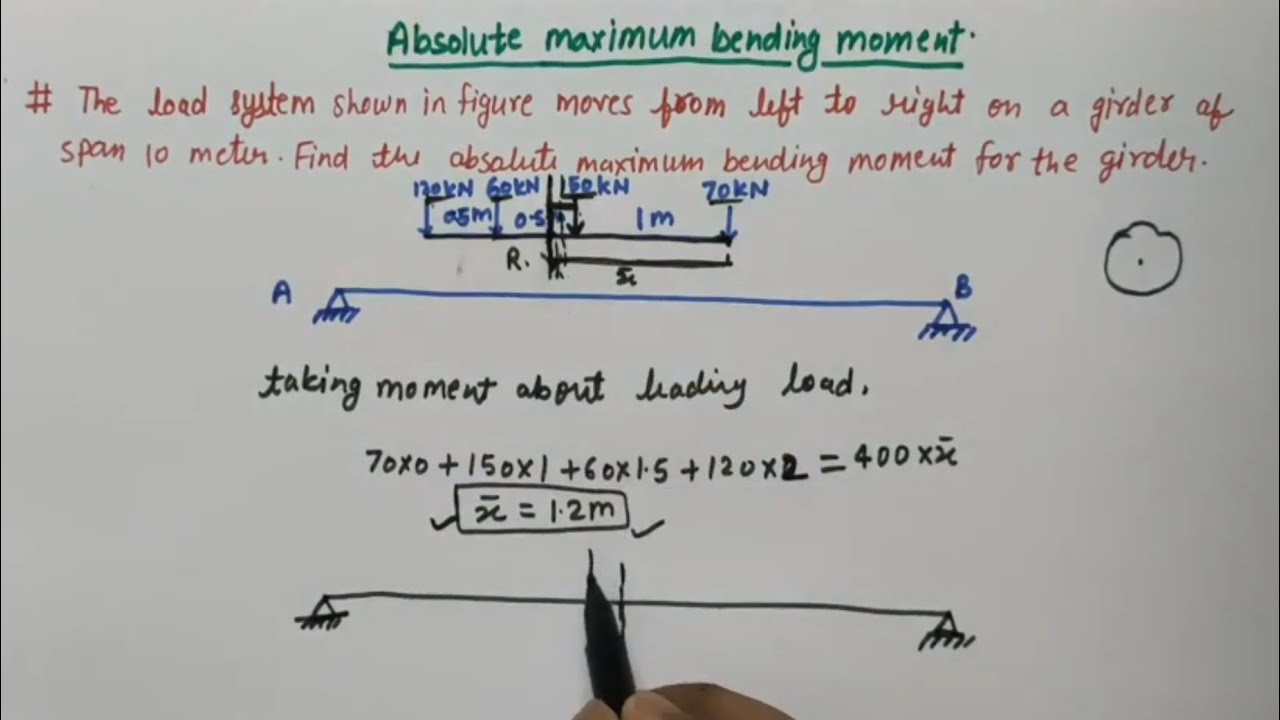 Absolute maximum bending moment.
# The load system shown in figure moves from left to right on a girder of
span 10 meter. Find the absolute maximum bending moment for the girder.
120kN 60kN 150kN 70kN
0.5m 0.5 1m
R. x̄
A B
taking moment about leading load.
70x0 + 150x1 + 60x1.5 + 120x2 = 400 x x̄
x̄ = 1.2m